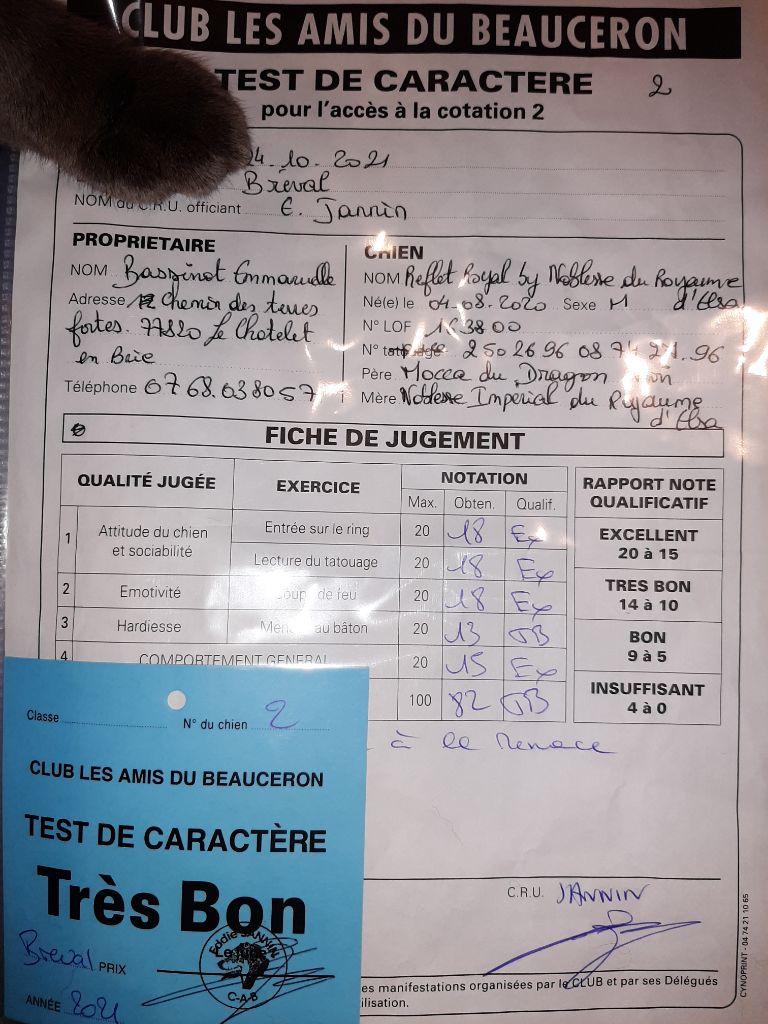 CLUB LES AMIS DU BEAUCERON
TEST DE CARACTERE 2
pour l'accès à la cotation 2
24.10.2021
Bréval
NOM du C.R.U. officiant E. Jannin
PROPRIETAIRE
NOM Bassinot Emmanuelle
Adresse 12 Chemin des terres
fortes. 77820 Le Chatelet
en Brie
Téléphone 0768.038057
CHIEN
NOM Reflet Royal by Noblesse du Royaume
d'Elsa
Né(e) le 04.08.2020 Sexe M
N° LOF
N° 250 26 96 08 74 271.96
Père Mocca du Dragon Noir
Mère Noblesse Impérial du Royaume
d'Elsa
FICHE DE JUGEMENT
QUALITÉ JUGÉE EXERCICE NOTATION
Max. Obten. Qualif.
1 Attitude du chien et sociabilité Entrée sur le ring 20 18 Ex
Lecture du tatouage 20 18 Ex
2 Emotivité Coups de feu 20 18 Ex
3 Hardiesse Menace au bâton 20 13 TB
4 COMPORTEMENT GENERAL 20 15 Ex
100 82 TB
RAPPORT NOTE
QUALIFICATIF
EXCELLENT
20 à 15
TRES BON
14 à 10
BON
9 à 5
INSUFFISANT
4 à 0
à la menace
C.R.U. JANNIN
es manifestations organisées par le CLUB et par ses Délégués
ilisation.
CYNOPRINT - 04 74 21 10 65
Classe N° du chien 2
CLUB LES AMIS DU BEAUCERON
TEST DE CARACTÈRE
Très Bon
Breval PRIX
Eddie JANNIN
C-A-B
ANNÉE 2021